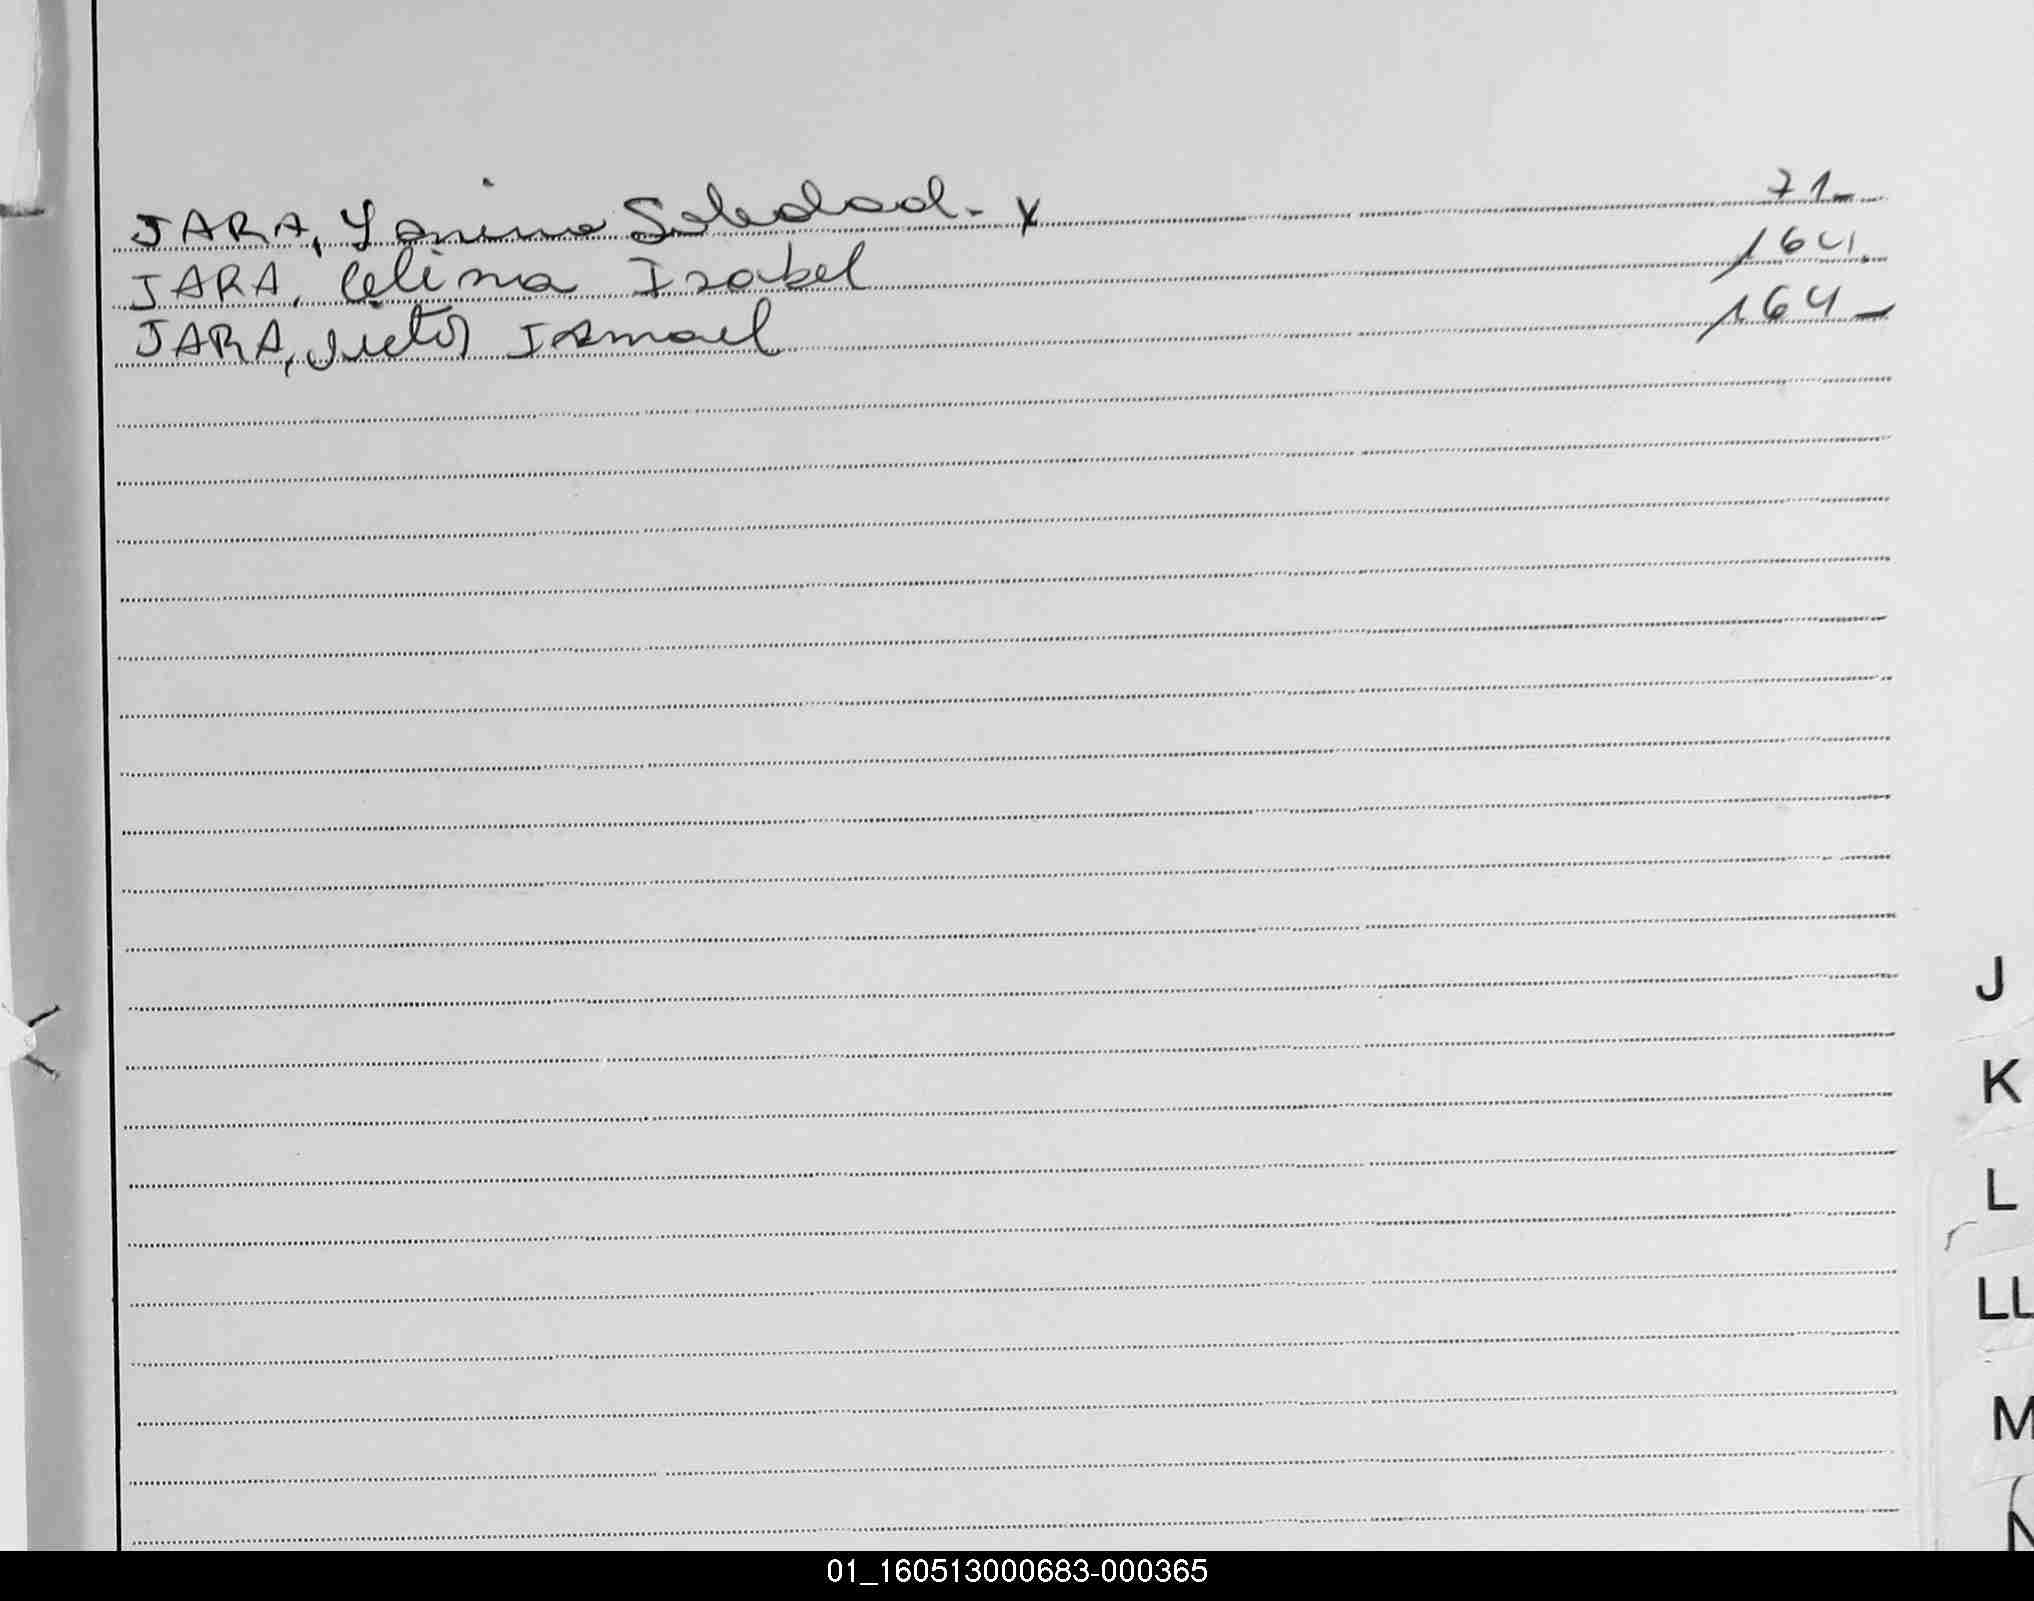 JARA, Yanina Soledad.- x 71-
JARA, Celina Isabel 164.
JARA, Victor Ismael 164-
J
K
L
LL
M
N
01_160513000683-000365